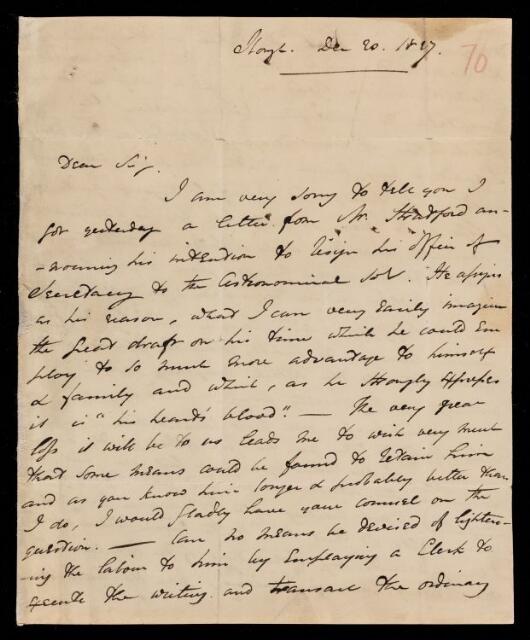 Slough. Dec 20. 1827.
70
Dear Sir,
I am very sorry to tell you I
got yesterday a letter from Mr. Stratford an-
-nouncing his intention to resign his office of
Secretary to the Astronomical Soc. He assigns
as his reason, what I can very easily imagine
the great draft on his time which he could em
ploy to so much more advantage to himself
& family and which, as he strongly expresses
it is "his heart's blood". — The very great
loss it will be to us leads me to wish very much
that some means could be found to retain him
and as you know him longer & probably better than
I do, I would gladly have your counsel on the
question. — Can no means be devised of lighten-
-ing the labour to him by employing a Clerk to
execute the writing and transact the ordinary